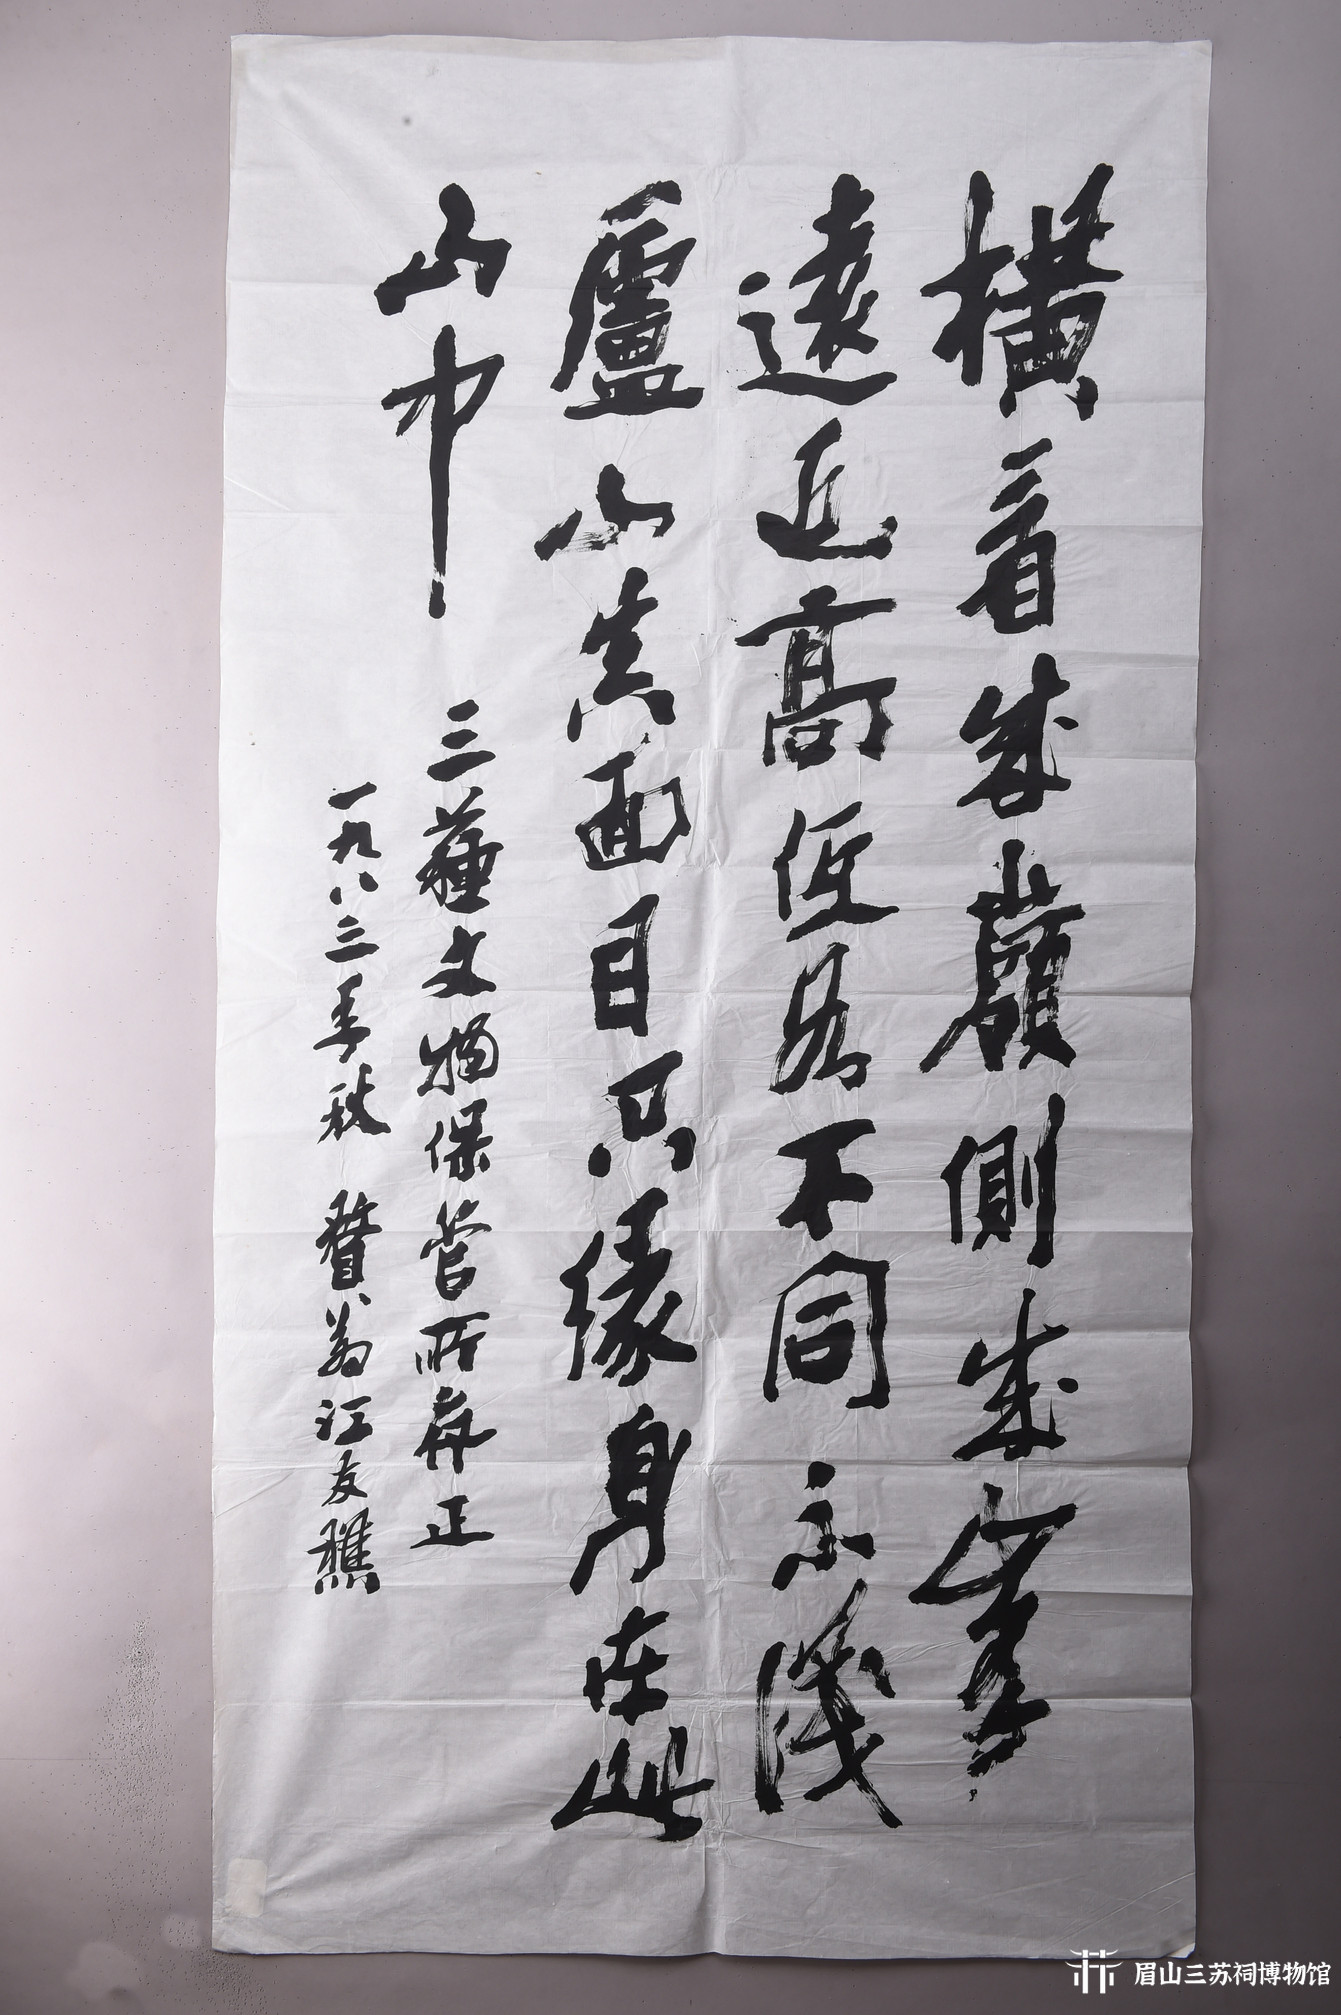 橫看成嶺側成峯
遠近高低各不同不識
廬山真面目只緣身在此
山中
三蘇文物保管所存正
一九八三年秋 贅翁江友樵
眉山三苏祠博物馆